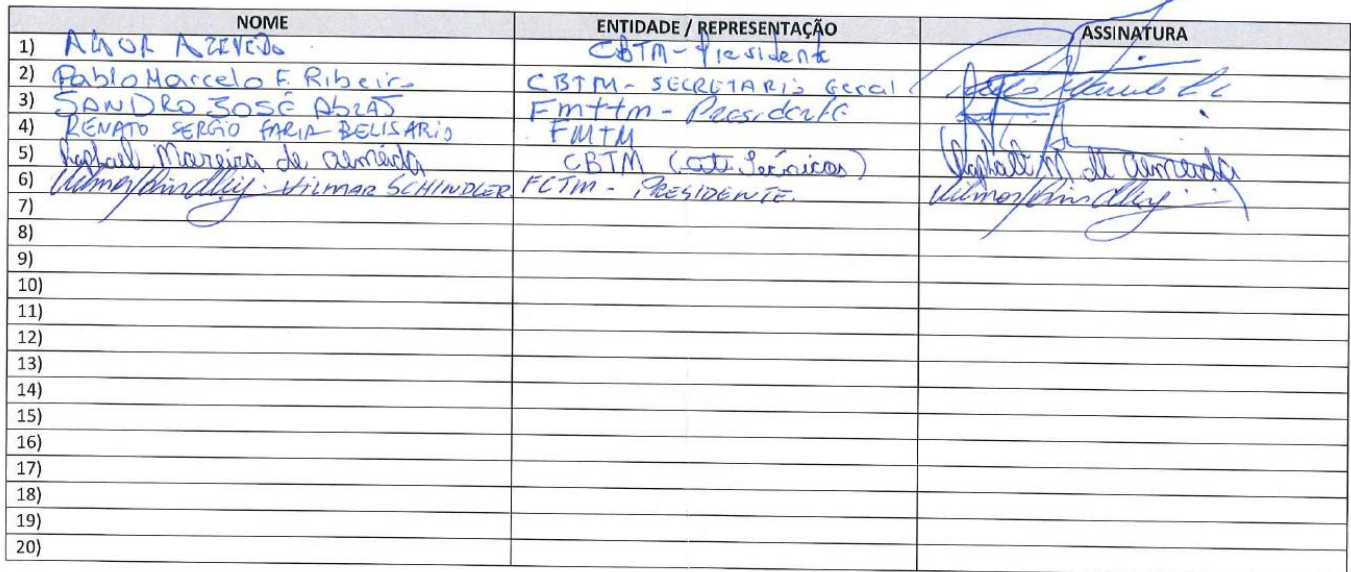 NOME ENTIDADE / REPRESENTAÇÃO ASSINATURA
1) Alaor Azevedo CBTM - Presidente
2) Pablo Marcelo F. Ribeiro CBTM - SECRETARIO Geral
3) SANDRO JOSÉ Fmttm - Presidente
4) RENATO SERGIO FARIA BELISARIO FMTM
5) Raphael Moreira de almeida CBTM Raphael M. de almeida
6) VILMAR SCHINDLER FCTM - PRESIDENTE.
7)
8)
9)
10)
11)
12)
13)
14)
15)
16)
17)
18)
19)
20)